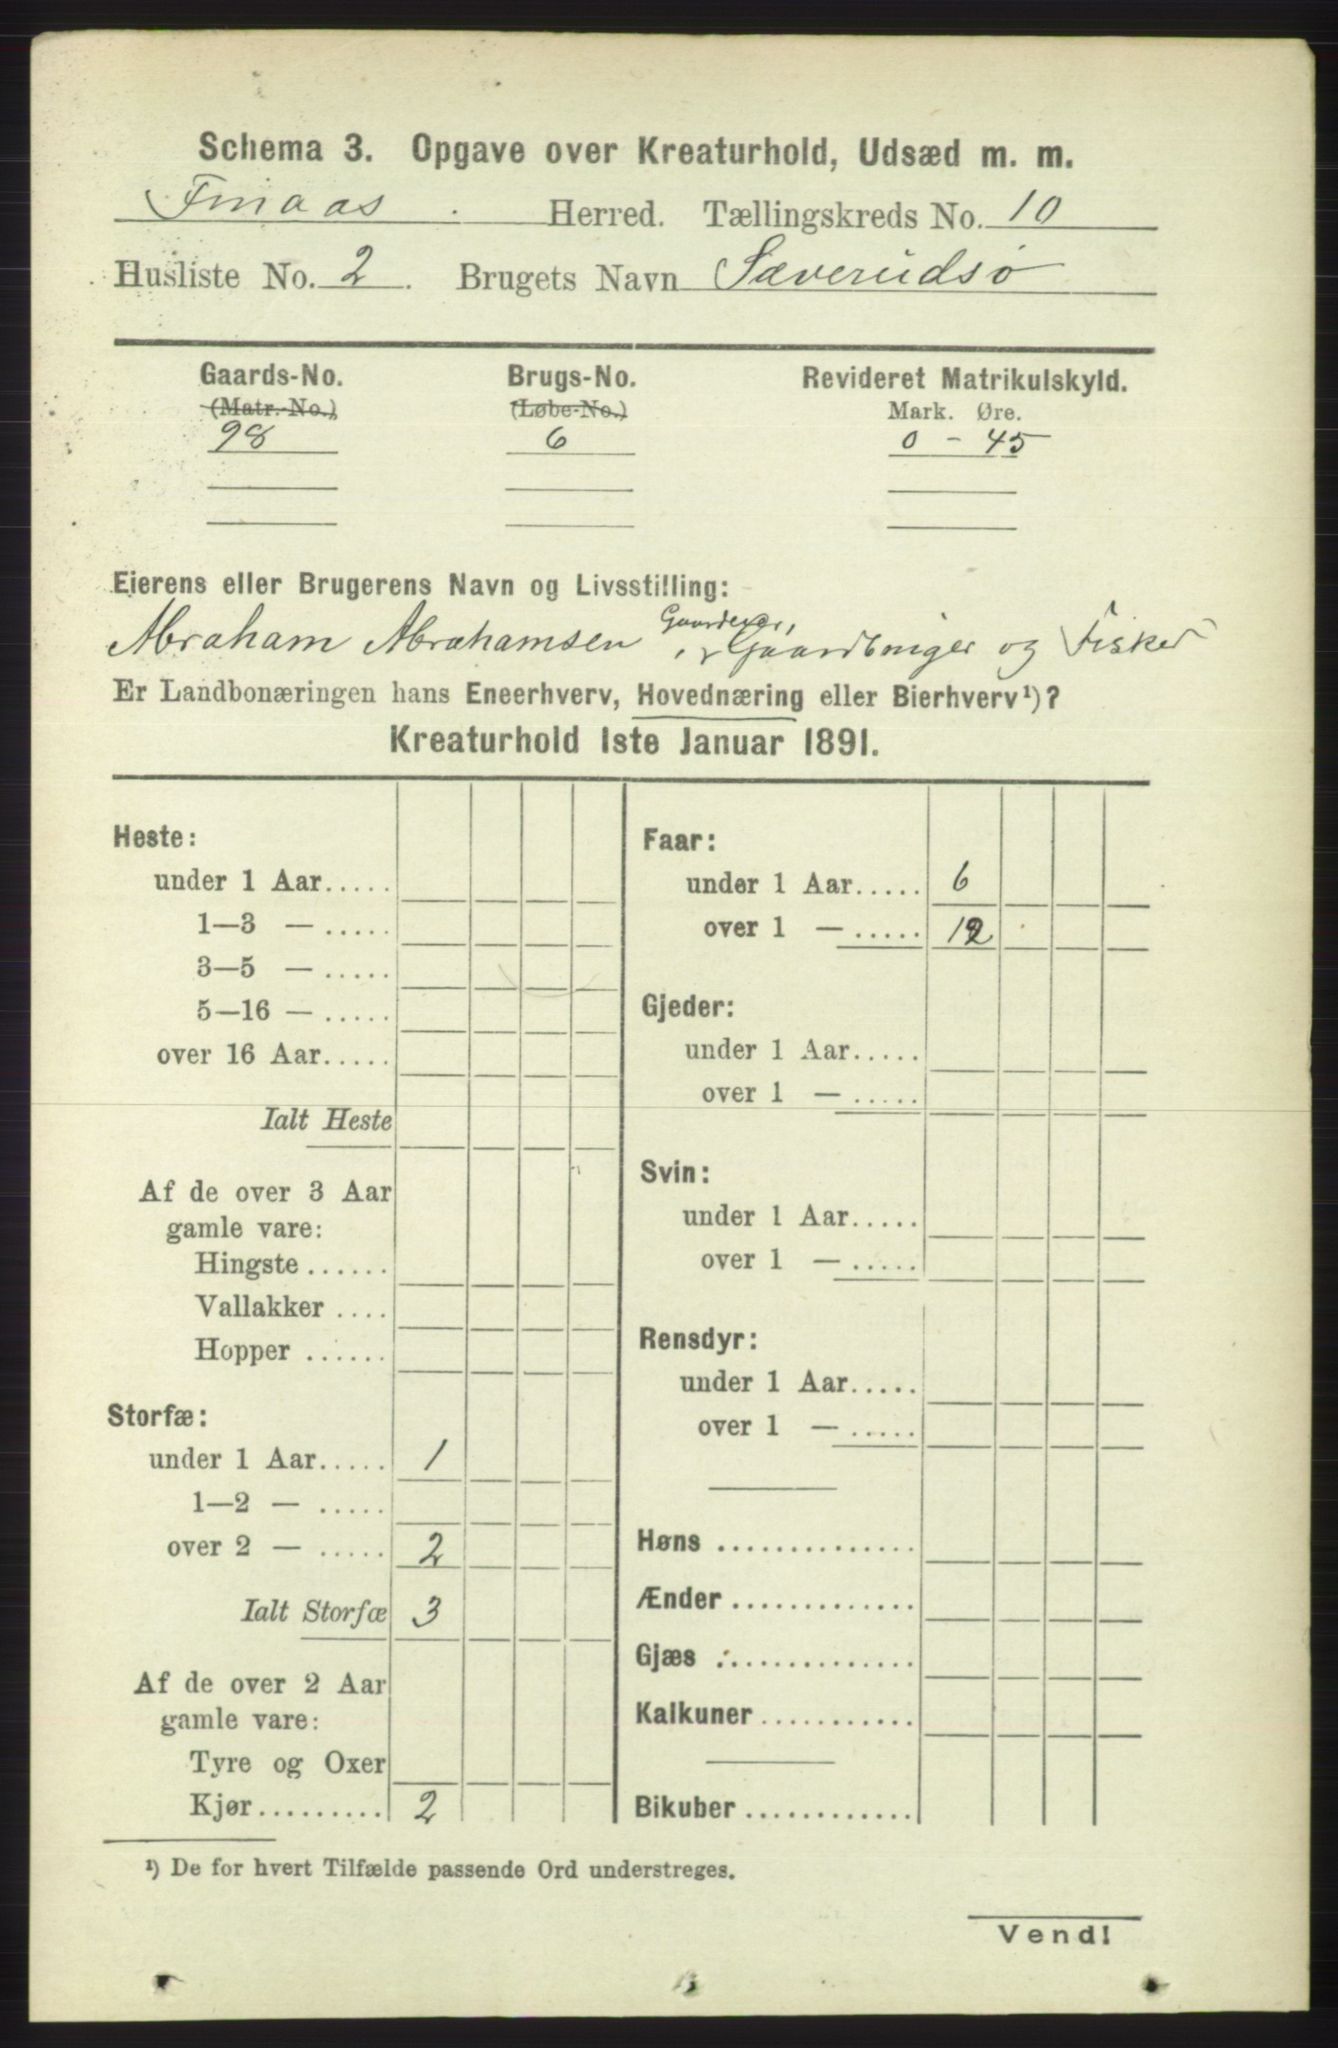 Schema 3. Opgave over Kreaturhold, Udsæd m. m.
Finaas Herred. Tællingskreds No. 10
Husliste No. 2. Brugets Navn Sæverudsø
Gaards-No. Brugs-No. Revideret Matrikulskyld.
(Matr.-No.) (Løbe-No.) Mark. Øre.
98 6 0 - 45
Eierens eller Brugerens Navn og Livsstilling:
Gaardeier,
Abraham Abrahamsen, Gaardbruger og Fisker
Er Landbonæringen hans Eneerhverv, Hovednæring eller Bierhverv¹)?
Kreaturhold 1ste Januar 1891.
Heste:
under 1 Aar.....
1—3 — .....
3—5 — .....
5—16 — .....
over 16 Aar.....
Ialt Heste
Af de over 3 Aar
gamle vare:
Hingste ......
Vallakker ....
Hopper ......
Storfæ:
under 1 Aar..... 1
1—2 — .....
over 2 — ..... 2
Ialt Storfæ 3
Af de over 2 Aar
gamle vare:
Tyre og Oxer
Kjør.......... 2
Faar:
under 1 Aar..... 6
over 1 — ..... 12
Gjeder:
under 1 Aar.....
over 1 — .....
Svin:
under 1 Aar.....
over 1 — .....
Rensdyr:
under 1 Aar.....
over 1 — .....
Høns ..............
Ænder .............
Gjæs ..............
Kalkuner ...........
Bikuber .............
¹) De for hvert Tilfælde passende Ord understreges.
Vend!